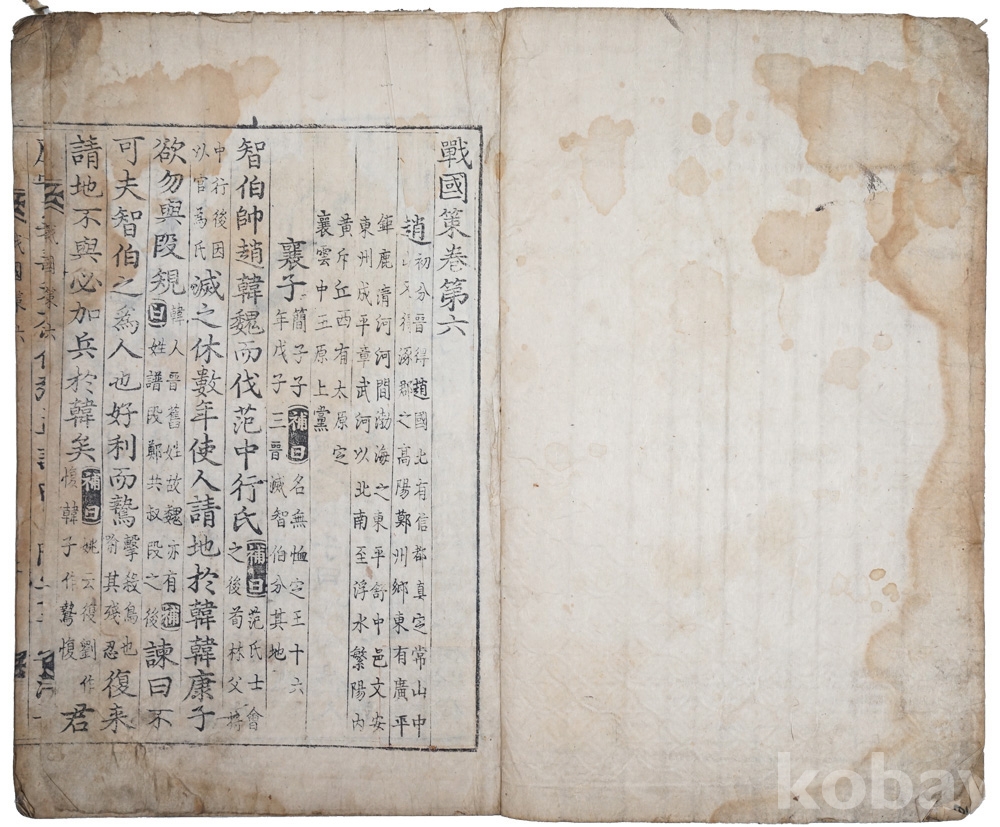 戰國策卷第六
趙初分晉得趙國北有信都真定常山中
山又得涿郡之高陽鄚州鄉東有廣平
鉅鹿清河河間渤海之東平舒中邑文安
東州成平章武河以北南至浮水繁陽內
黃斥丘西有太原定
襄雲中五原上黨
襄子簡子子補曰名無恤定王十六
年戊子三晉滅智伯分其地
智伯帥趙韓魏而伐范中行氏補曰范氏士會之後荀林父將
中行後因以官為氏滅之休數年使人請地於韓韓康子
欲勿與段規韓人晉舊姓故魏亦有補曰姓譜段鄭共叔段之後諫曰不
可夫智伯之爲人也好利而鷙擊殺鳥也喻其殘忍復来
請地不與必加兵於韓矣補曰姚云復劉作愎韓子作驁愎君
kobay